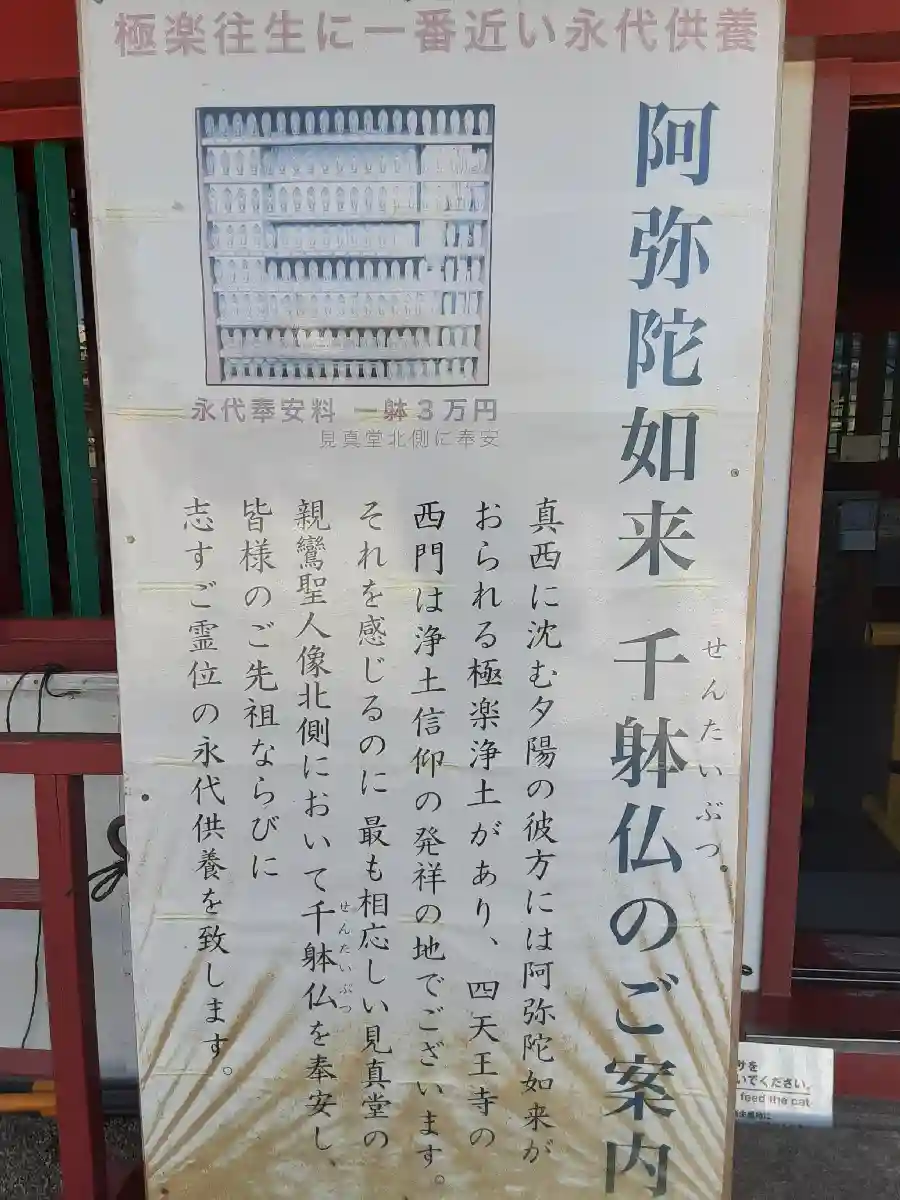 極楽往生に一番近い永代供養
阿弥陀如来 千躰仏のご案内
せんたいぶつ
永代奉安料 一躰3万円
見真堂北側に奉安
真西に沈む夕陽の彼方には阿弥陀如来が
おられる極楽浄土があり、四天王寺の
西門は浄土信仰の発祥の地でございます。
それを感じるのに最も相応しい見真堂の
親鸞聖人像北側において千躰仏を奉安し、
せんたいぶつ
皆様のご先祖ならびに
志すご霊位の永代供養を致します。
サを
いでください。
feed the cat